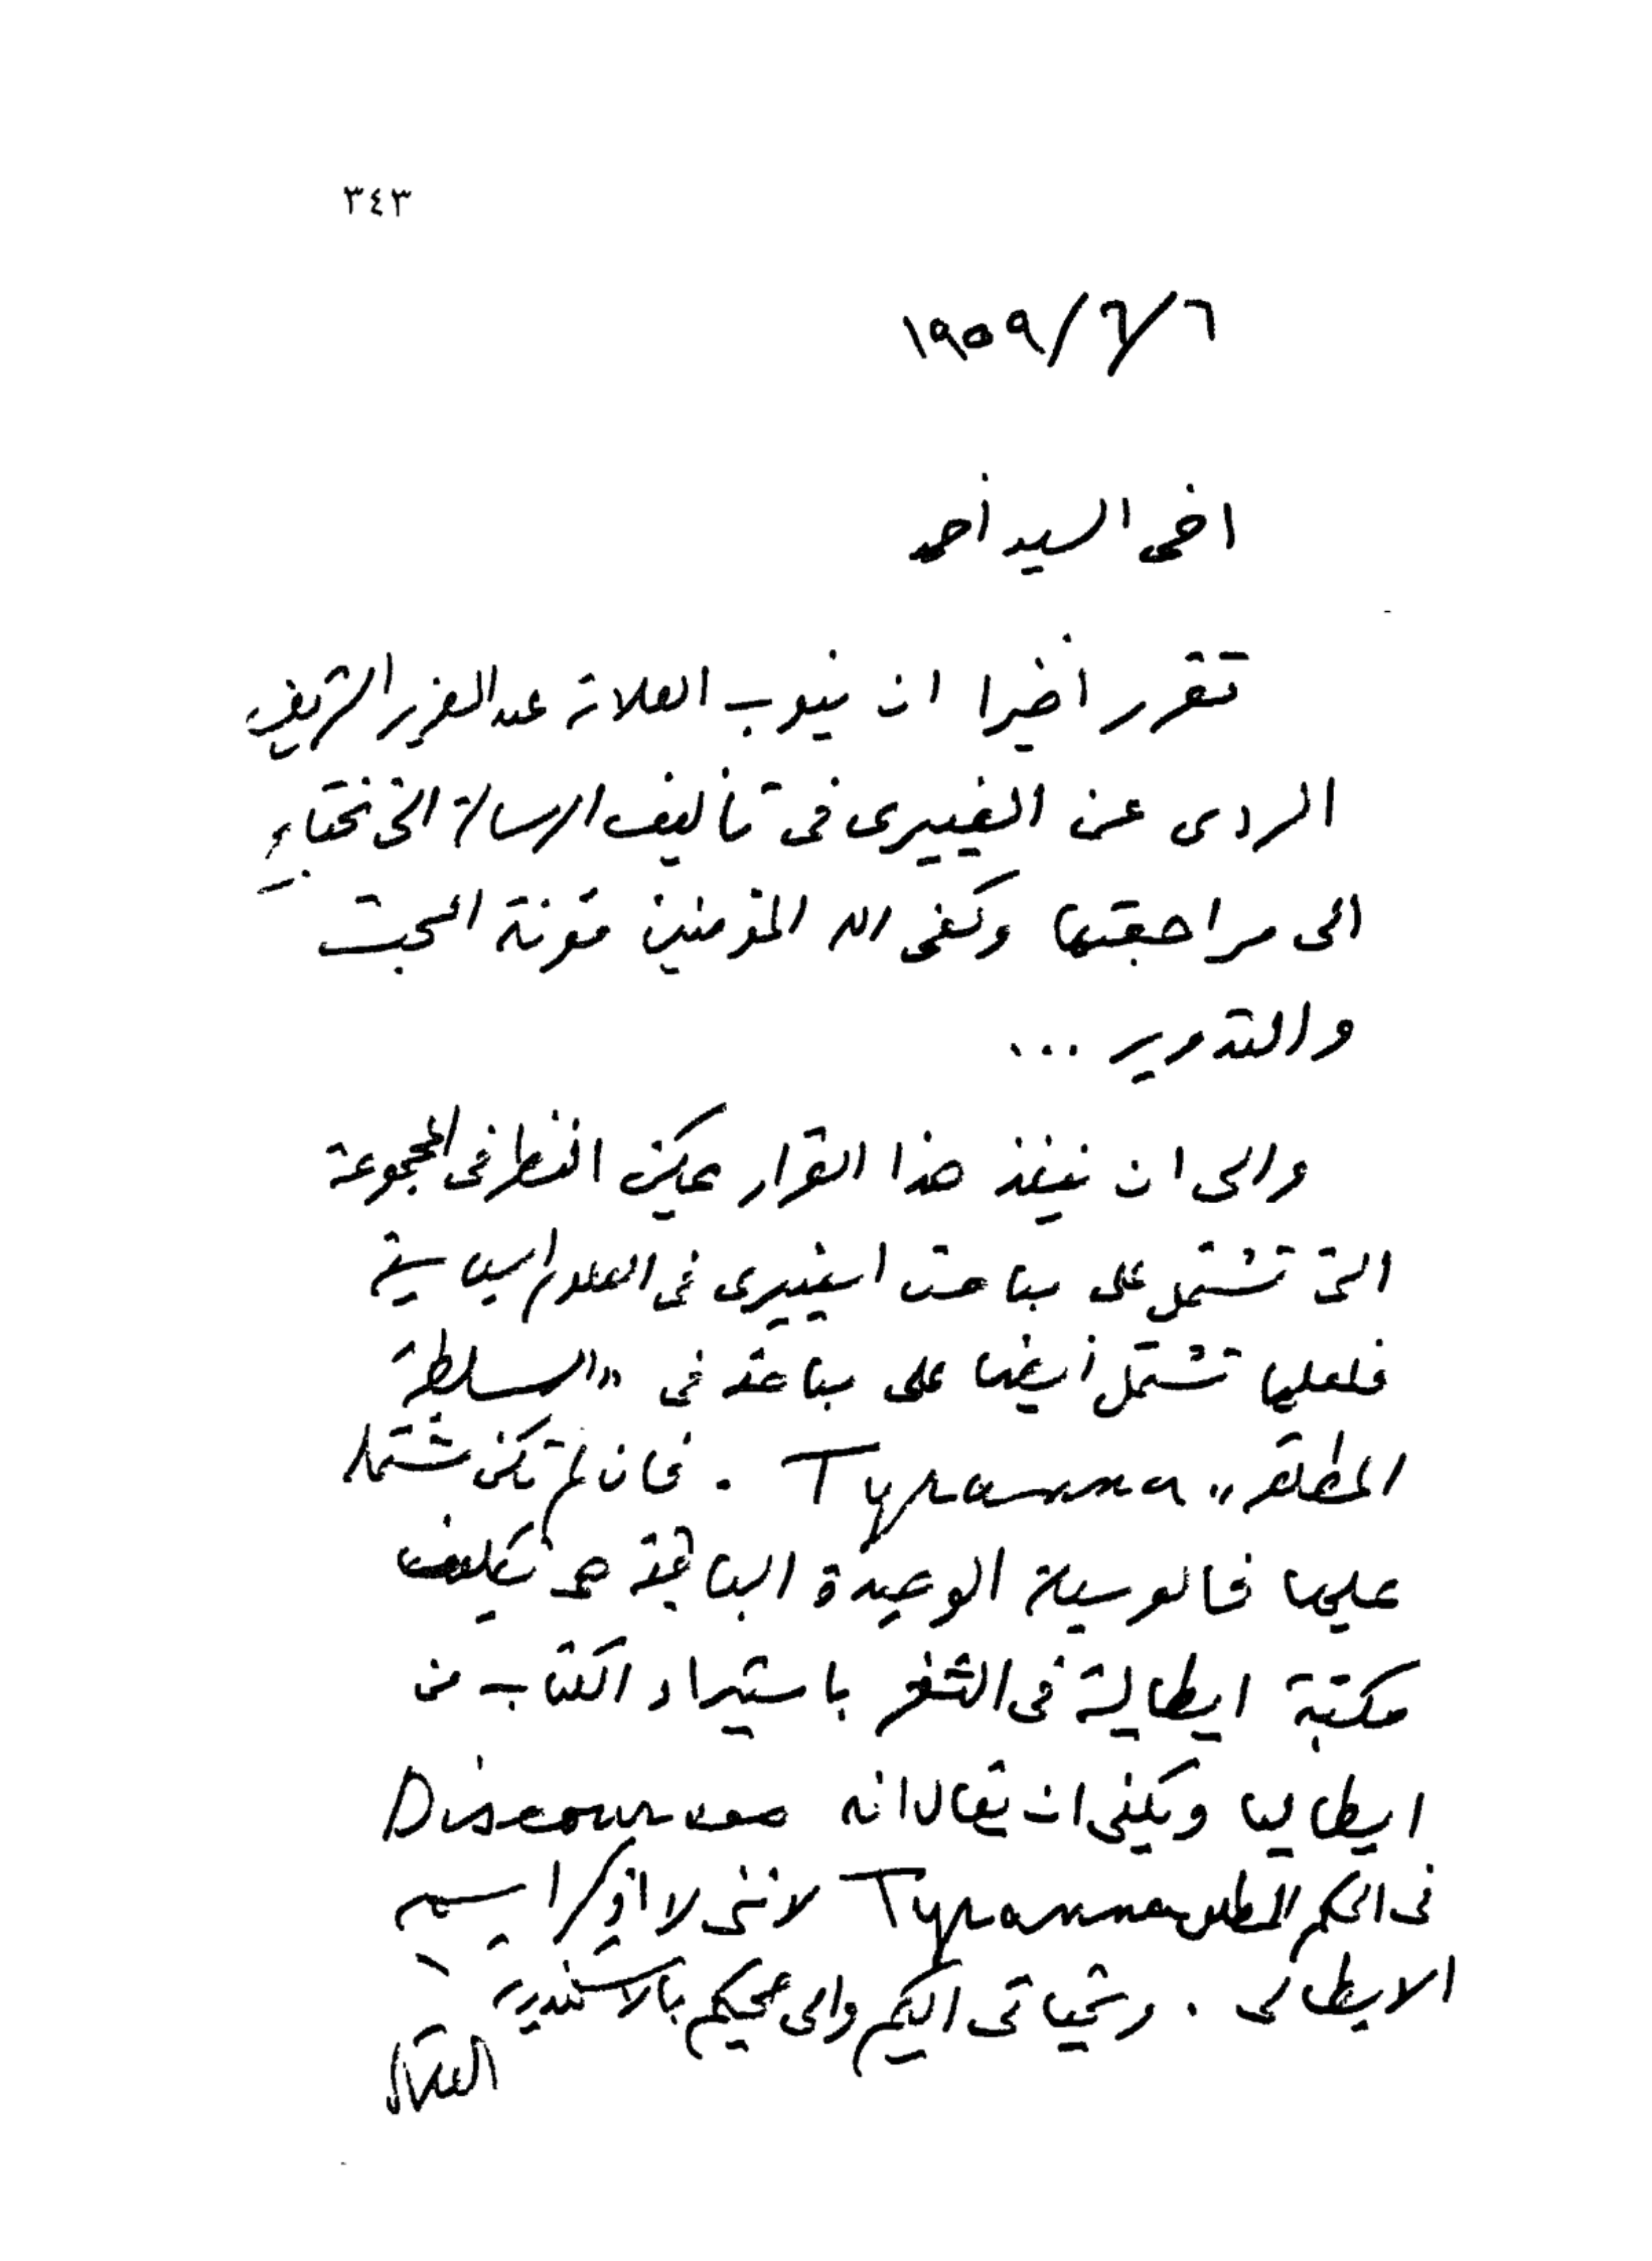 ٣٤٣
٦/٦/١٩٥٩
اخى السيد أحمد
تقرر أخيرا ان ينوب العلامة عبد العزيز الشريف
الردى عن الفييرى فى تأليف الرسالة التى نحتاج
الى مراجعتها وكفى الله المؤمنين مؤنة البحث
والتدوير ...
والى ان ينفذ هذا القرار يمكن النظر فى المجموعة
التى تشتمل على مباحث الفييرى فى العلوم السياسية
فلعلها تشتمل أيضا على مباحثه فى «السلطة
المطلقة» Tyranna . فان لم تكن مشتملة
عليها فالوسيلة الوحيدة الباقية هى تكليف
مكتبة ايطالية فى الثغر باستيراد الكتاب من
ايطاليا ويكفى ان يقال انه Discourses
فى الحكم المطلق Tyranna لاننى لا اذكر اسمه
الايطالى . وتحياتى اليكم والى صحبكم بالاسكندرية